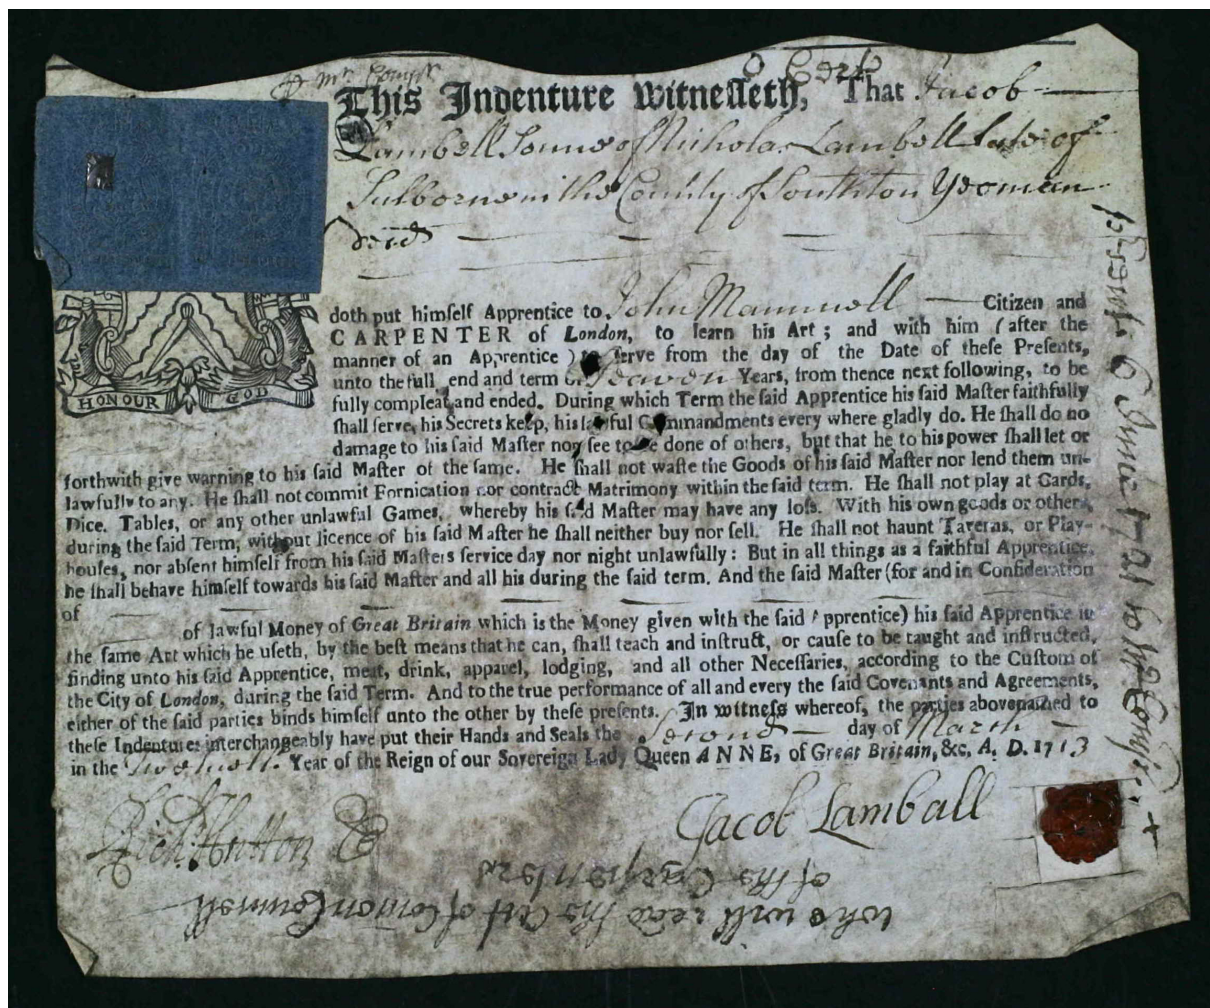 This Indenture Witnesseth, That Jacob
Lambell Sonne of Nicholas Lambell late of
in the County of Southton Yeoman
decd
doth put himself Apprentice to John Mammell Citizen and
CARPENTER of London, to learn his Art; and with him (after the
manner of an Apprentice) to serve from the day of the Date of these Presents,
unto the full end and term of Seaven Years, from thence next following, to be
fully compleat and ended. During which Term the said Apprentice his said Master faithfully
shall serve, his Secrets keep, his lawful Commandments every where gladly do. He shall do no
HONOUR GOD
damage to his said Master nor see to be done of others, but that he to his power shall let or
forthwith give warning to his said Master of the same. He shall not waste the Goods of his said Master nor lend them un-
lawfully to any. He shall not commit Fornication nor contract Matrimony within the said term. He shall not play at Cards,
Dice, Tables, or any other unlawful Games, whereby his said Master may have any loss. With his own goods or others,
during the said Term, without licence of his said Master he shall neither buy nor sell. He shall not haunt Taverns, or Play-
houses, nor absent himself from his said Masters service day nor night unlawfully: But in all things as a faithful Apprentice,
he shall behave himself towards his said Master and all his during the said term. And the said Master (for and in Consideration
of
of lawful Money of Great Britain which is the Money given with the said Apprentice) his said Apprentice in
the same Art which he useth, by the best means that he can, shall teach and instruct, or cause to be taught and instructed,
finding unto his said Apprentice, meat, drink, apparel, lodging, and all other Necessaries, according to the Custom of
the City of London, during the said Term. And to the true performance of all and every the said Covenants and Agreements,
either of the said parties binds himself unto the other by these presents. In witness whereof, the parties abovenamed to
these Indentures interchangeably have put their Hands and Seals the Second day of March
in the Twelveth Year of the Reign of our Sovereign Lady Queen ANNE, of Great Britain, &c. A. D. 1713
Jacob Lamball
Richd Hutton
who will read this Act of Common Counsell
of this City
6 June 1721